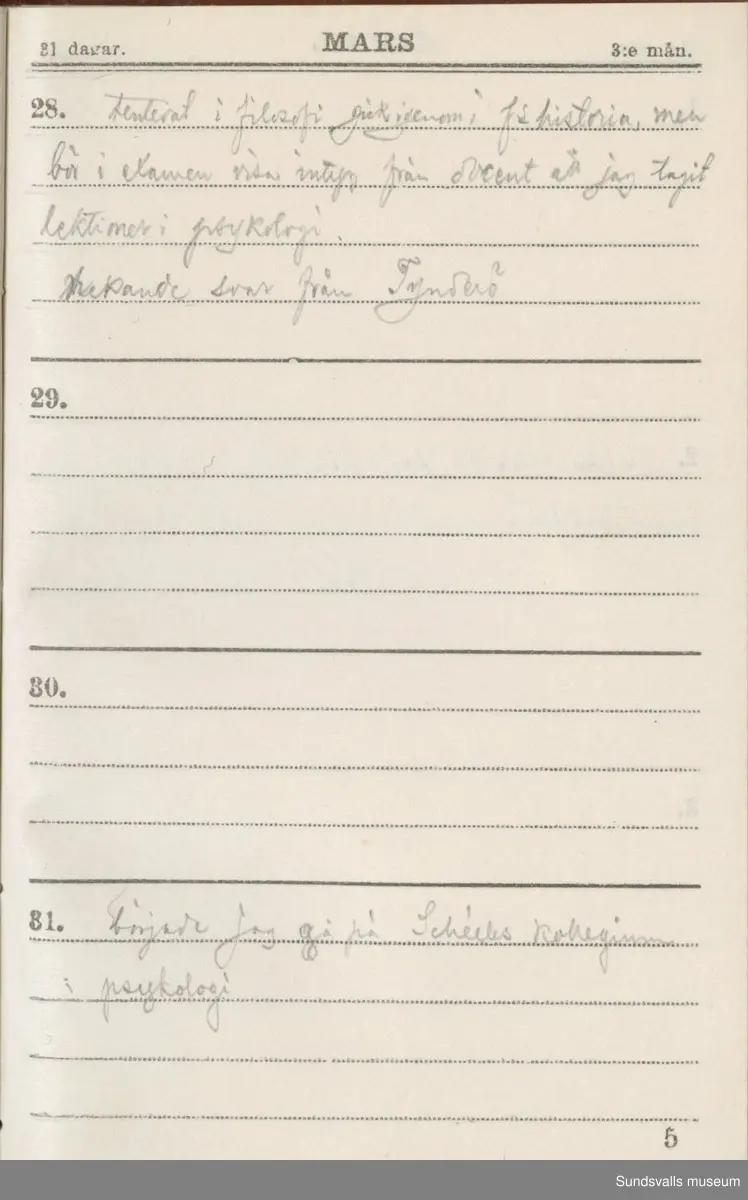 31 dagar. MARS 3:e mån.
28. Tenterat i filosofi gick igenom i f:s historia, men
bör i examen visa intyg från docent att jag tagit
lektioner i psykologi.
Nekande svar från Tynderö
29.
30.
31. började jag gå på Schéeles kollegium
i psykologi
5
Sundsvalls museum